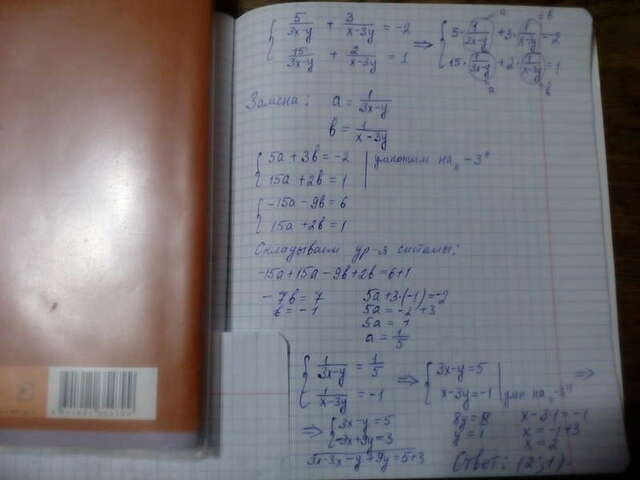 { 5/(3x-y) + 3/(x-3y) = -2
{ 15/(3x-y) + 2/(x-3y) = 1
⇒ { 5·1/(3x-y) + 3·1/(x-3y) = -2
{ 15·1/(3x-y) + 2·1/(x-3y) = 1
a
в
a
в
Замена: a = 1/(3x-y)
в = 1/(x-3y)
{ 5a + 3в = -2 | умножим на „-3"
{ 15a + 2в = 1
{ -15a - 9в = 6
{ 15a + 2в = 1
Складываем ур-я системы:
-15a + 15a - 9в + 2в = 6 + 1
-7в = 7
в = -1
5a + 3·(-1) = -2
5a = -2 + 3
5a = 1
a = 1/5
{ 1/(3x-y) = 1/5
{ 1/(x-3y) = -1
⇒ { 3x-y = 5
{ x-3y = -1 | умн на „-3" ⇒
⇒ { 3x-y = 5
{ -3x+9y = 3
3x-3x-y+9y = 5+3
8y = 8
y = 1
x-3·1 = -1
x = -1+3
x = 2
Ответ: (2;1)